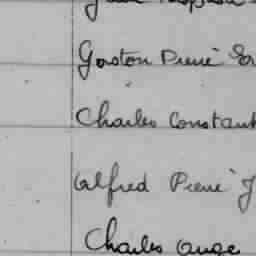 Gaston Pierre
Charles Constant
Alfred Pierre J
Charles Ange